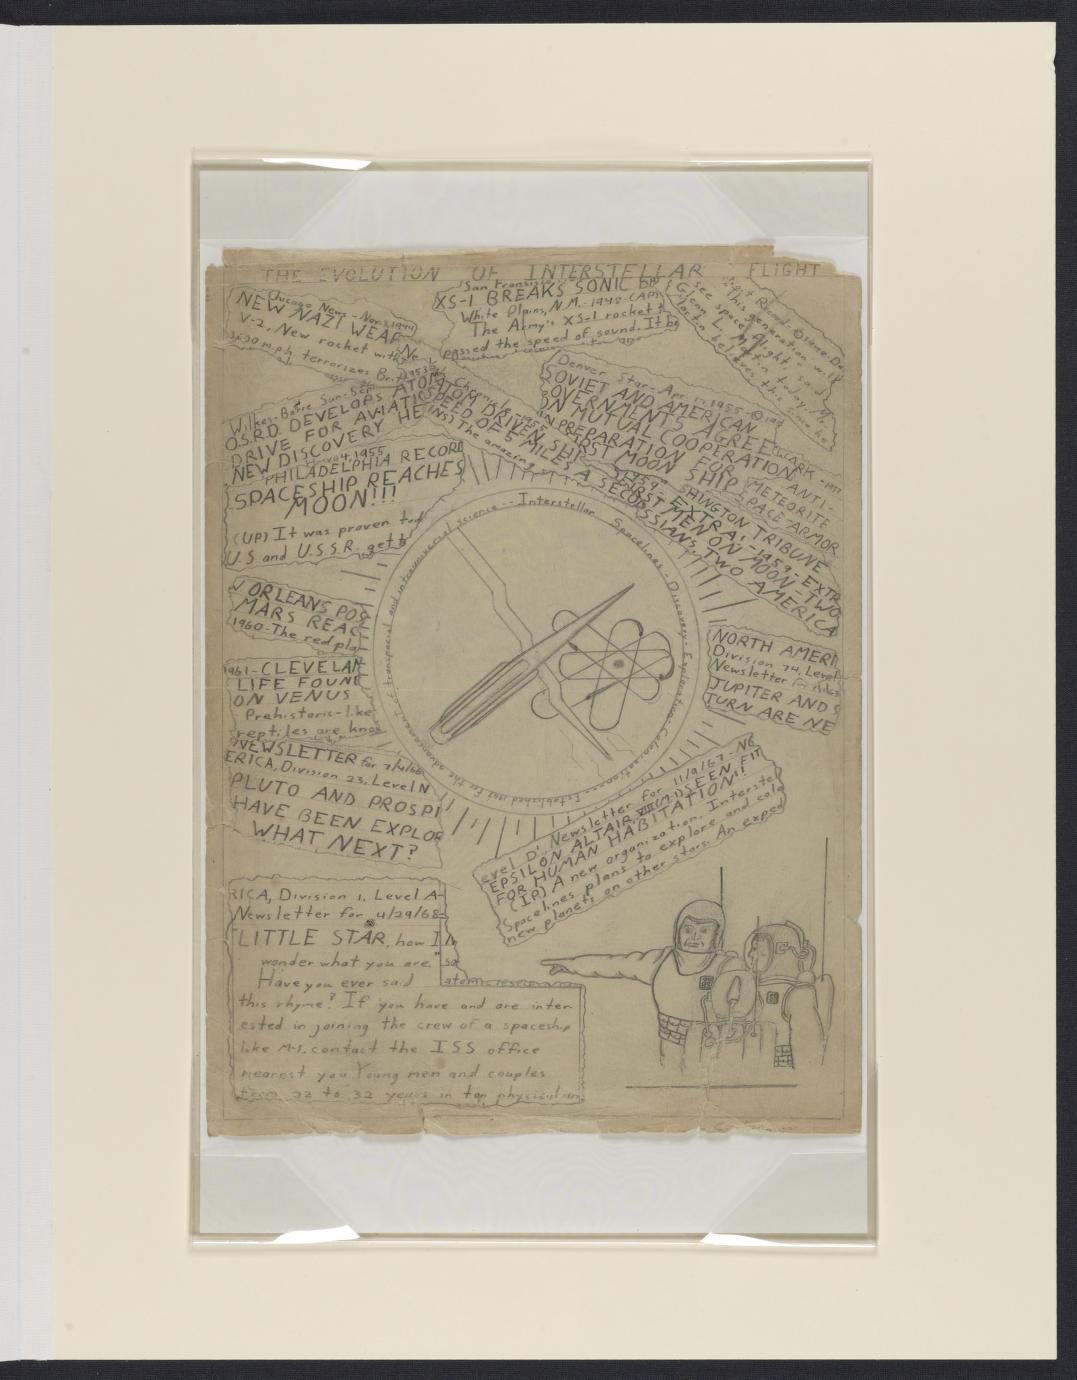 THE EVOLUTION OF INTERSTELLAR FLIGHT
Chicago News - Nov 3, 1944
NEW NAZI WEAP
V-2. New rocket with
m.p.h. terrorizes
San Francisco
XS-1 BREAKS SONIC
White Plains, N.M. - 1948 - (AP)
The Army's XS-1 rocket
passed the speed of sound. It be
this generation will
see space flight, said
Glenn L. Martin today. Mr.
Martin believes this
Wilkes-Barre Sun-
O.S.R.D. DEVELOPS ATOM
DRIVE FOR AVIATI
NEW DISCOVERY HE
ATOM DRIVEN SHI
SPEED OF 5 MILES A SECO
(INS) The amazing
Denver Star - Apr. 17, 1955 -
SOVIET AND AMERICAN
GOVERNMENTS AGREE
ON MUTUAL COOPERATION
IN PREPARATION FOR
FIRST MOON SHIP
ANTI-
METEORITE
SPACE ARMOR
SHINGTON TRIBUNE
1959 - EXTRA! - 1959 - EXTR
FIRST MEN ON MOON - TWO
RUSSIANS, TWO AMERICA
1955
PHILADELPHIA RECORD
SPACESHIP REACHES
MOON!!!
(UP) It was proven tod
U.S and U.S.S.R. get
W ORLEANS POS
MARS REAC
1960 - The red pla
1961 - CLEVELAN
LIFE FOUN
ON VENUS
Prehistoric-like
reptiles are kno
NEWSLETTER for
ERICA, Division 23, Level N
PLUTO AND PROSPI
HAVE BEEN EXPLOR
WHAT NEXT?
NORTH AMERI
Division 74, Level
Newsletter for
JUPITER AND S
TURN ARE NE
-- Interstellar Spacelines - Discovery - Exploration - Colonization -- Established 1967 for the advancement of transpacial and intrauniversal science --
evel D' Newsletter for 11/9/67 - NO
EPSILON ALTAIR VIII (M-1) SEEN FIT
FOR HUMAN HABITATION!!
(IP) A new organization, Interste
Spacelines plans to explore and colo
new planets on other stars. An exped
RICA, Division 1, Level A-
Newsletter for 4/29/68-
LITTLE STAR, how I
wonder what you are."
Have you ever said
this rhyme? If you have and are inter
ested in joining the crew of a spaceship
like M-1, contact the ISS office
nearest you. Young men and couples
from 22 to 32 years in top physical